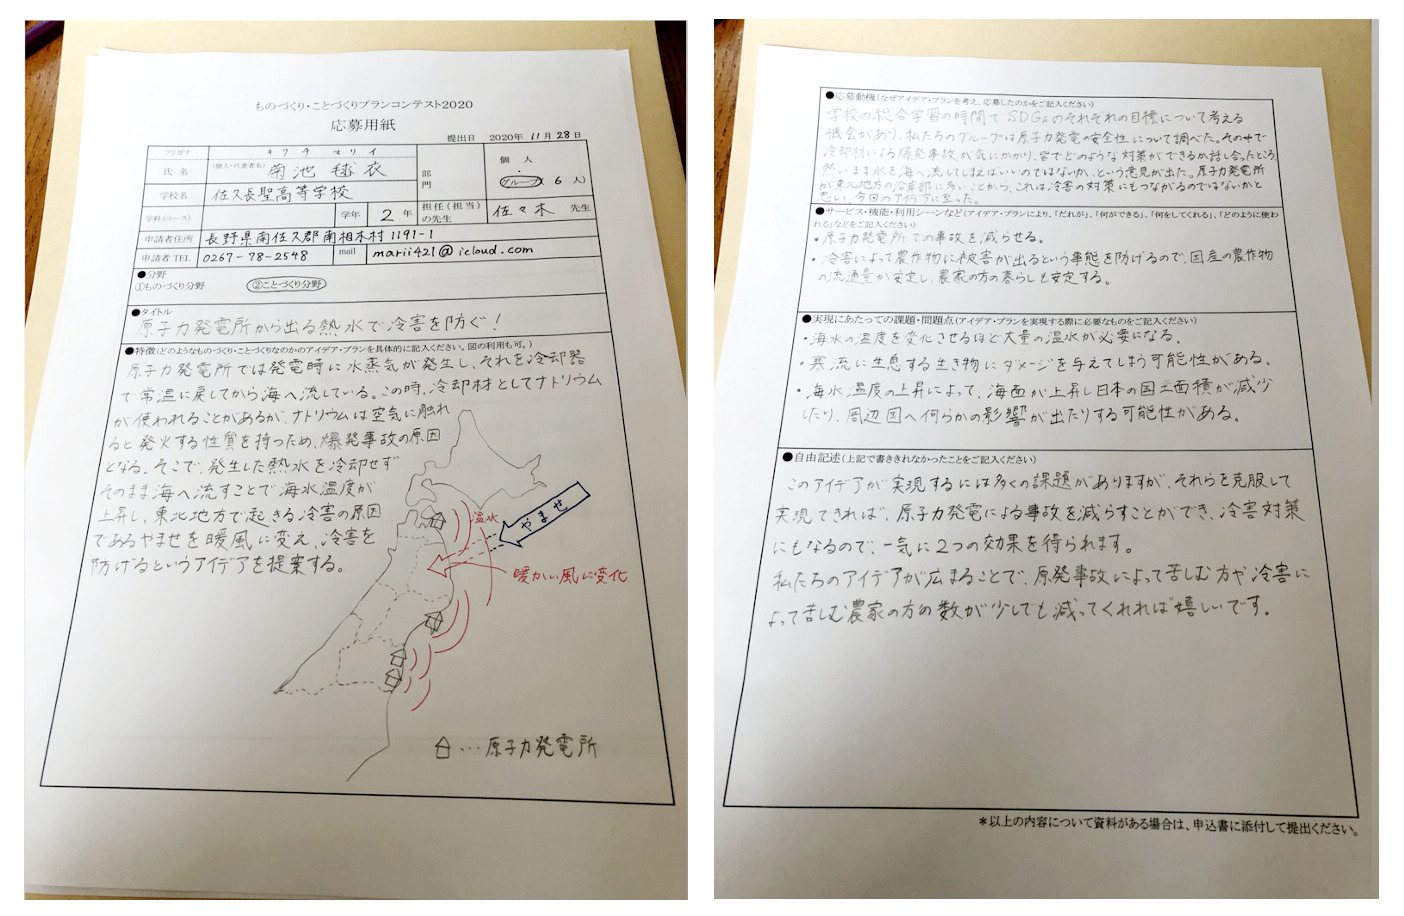 ものづくり・ことづくりプランコンテスト2020
応募用紙
提出日 2020年 11月 28日
フリガナ キクチ マリイ
氏名 (個人・代表者名) 菊池 毬衣
部門
個人
・
グループ( 6 人)
学校名 佐久長聖高等学校
学科(コース) 学年 2 年
担任(担当)の先生 佐々木 先生
申請者住所 長野県南佐久郡南相木村1191-1
申請者TEL 0267-78-2548 mail marii421@icloud.com
●分野
①ものづくり分野 ②ことづくり分野
●タイトル
原子力発電所から出る熱水で冷害を防ぐ!
●特徴(どのようなものづくり・ことづくりなのかのアイデア・プランを具体的に記入ください。図の利用も可。)
原子力発電所では発電時に水蒸気が発生し、それを冷却器
で常温に戻してから海へ流している。この時、冷却材としてナトリウム
が使われることがあるが、ナトリウムは空気に触れ
ると発火する性質を持つため、爆発事故の原因
となる。そこで、発生した熱水を冷却せず
そのまま海へ流すことで海水温度が
上昇し、東北地方で起きる冷害の原因
であるやませを暖風に変え、冷害を
防げるというアイデアを提案する。
温水
やませ
暖かい風に変化
…原子力発電所
●応募動機(なぜアイデア・プランを考え、応募したのかをご記入ください)
学校の総合学習の時間でSDGsのそれぞれの目標について考える
機会があり、私たちのグループは原子力発電の安全性について調べた。その中で
冷却材による爆発事故が気にかかり、皆でどのような対策ができるか話し合ったところ、
熱いまま水を海へ流してしまえばいいのではないか、という意見が出た。原子力発電所
が東北地方の沿岸部に多いことから、これは冷害の対策にもつながるのではないかと
思い、今回のアイデアに至った。
●サービス・機能・利用シーンなど(アイデア・プランにより、「だれが」、「何ができる」、「何をしてくれる」、「どのように使わ
れる」などをご記入ください)
・原子力発電所での事故を減らせる。
・冷害によって農作物に被害が出るという事態を防げるので、国産の農作物
の流通量が安定し、農家の方の暮らしも安定する。
●実現にあたっての課題・問題点(アイデア・プランを実現する際に必要なものをご記入ください)
・海水の温度を変化させるほど大量の温水が必要になる。
・寒流に生息する生き物にダメージを与えてしまう可能性がある。
・海水温度の上昇によって、海面が上昇し日本の国土面積が減少
したり、周辺国へ何らかの影響が出たりする可能性がある。
●自由記述(上記で書ききれなかったことをご記入ください)
このアイデアが実現するには多くの課題がありますが、それらを克服して
実現できれば、原子力発電による事故を減らすことができ、冷害対策
にもなるので、一気に2つの効果を得られます。
私たちのアイデアが広まることで、原発事故によって苦しむ方や冷害に
よって苦しむ農家の方の数が少しでも減ってくれれば嬉しいです。
＊以上の内容について資料がある場合は、申込書に添付して提出ください。